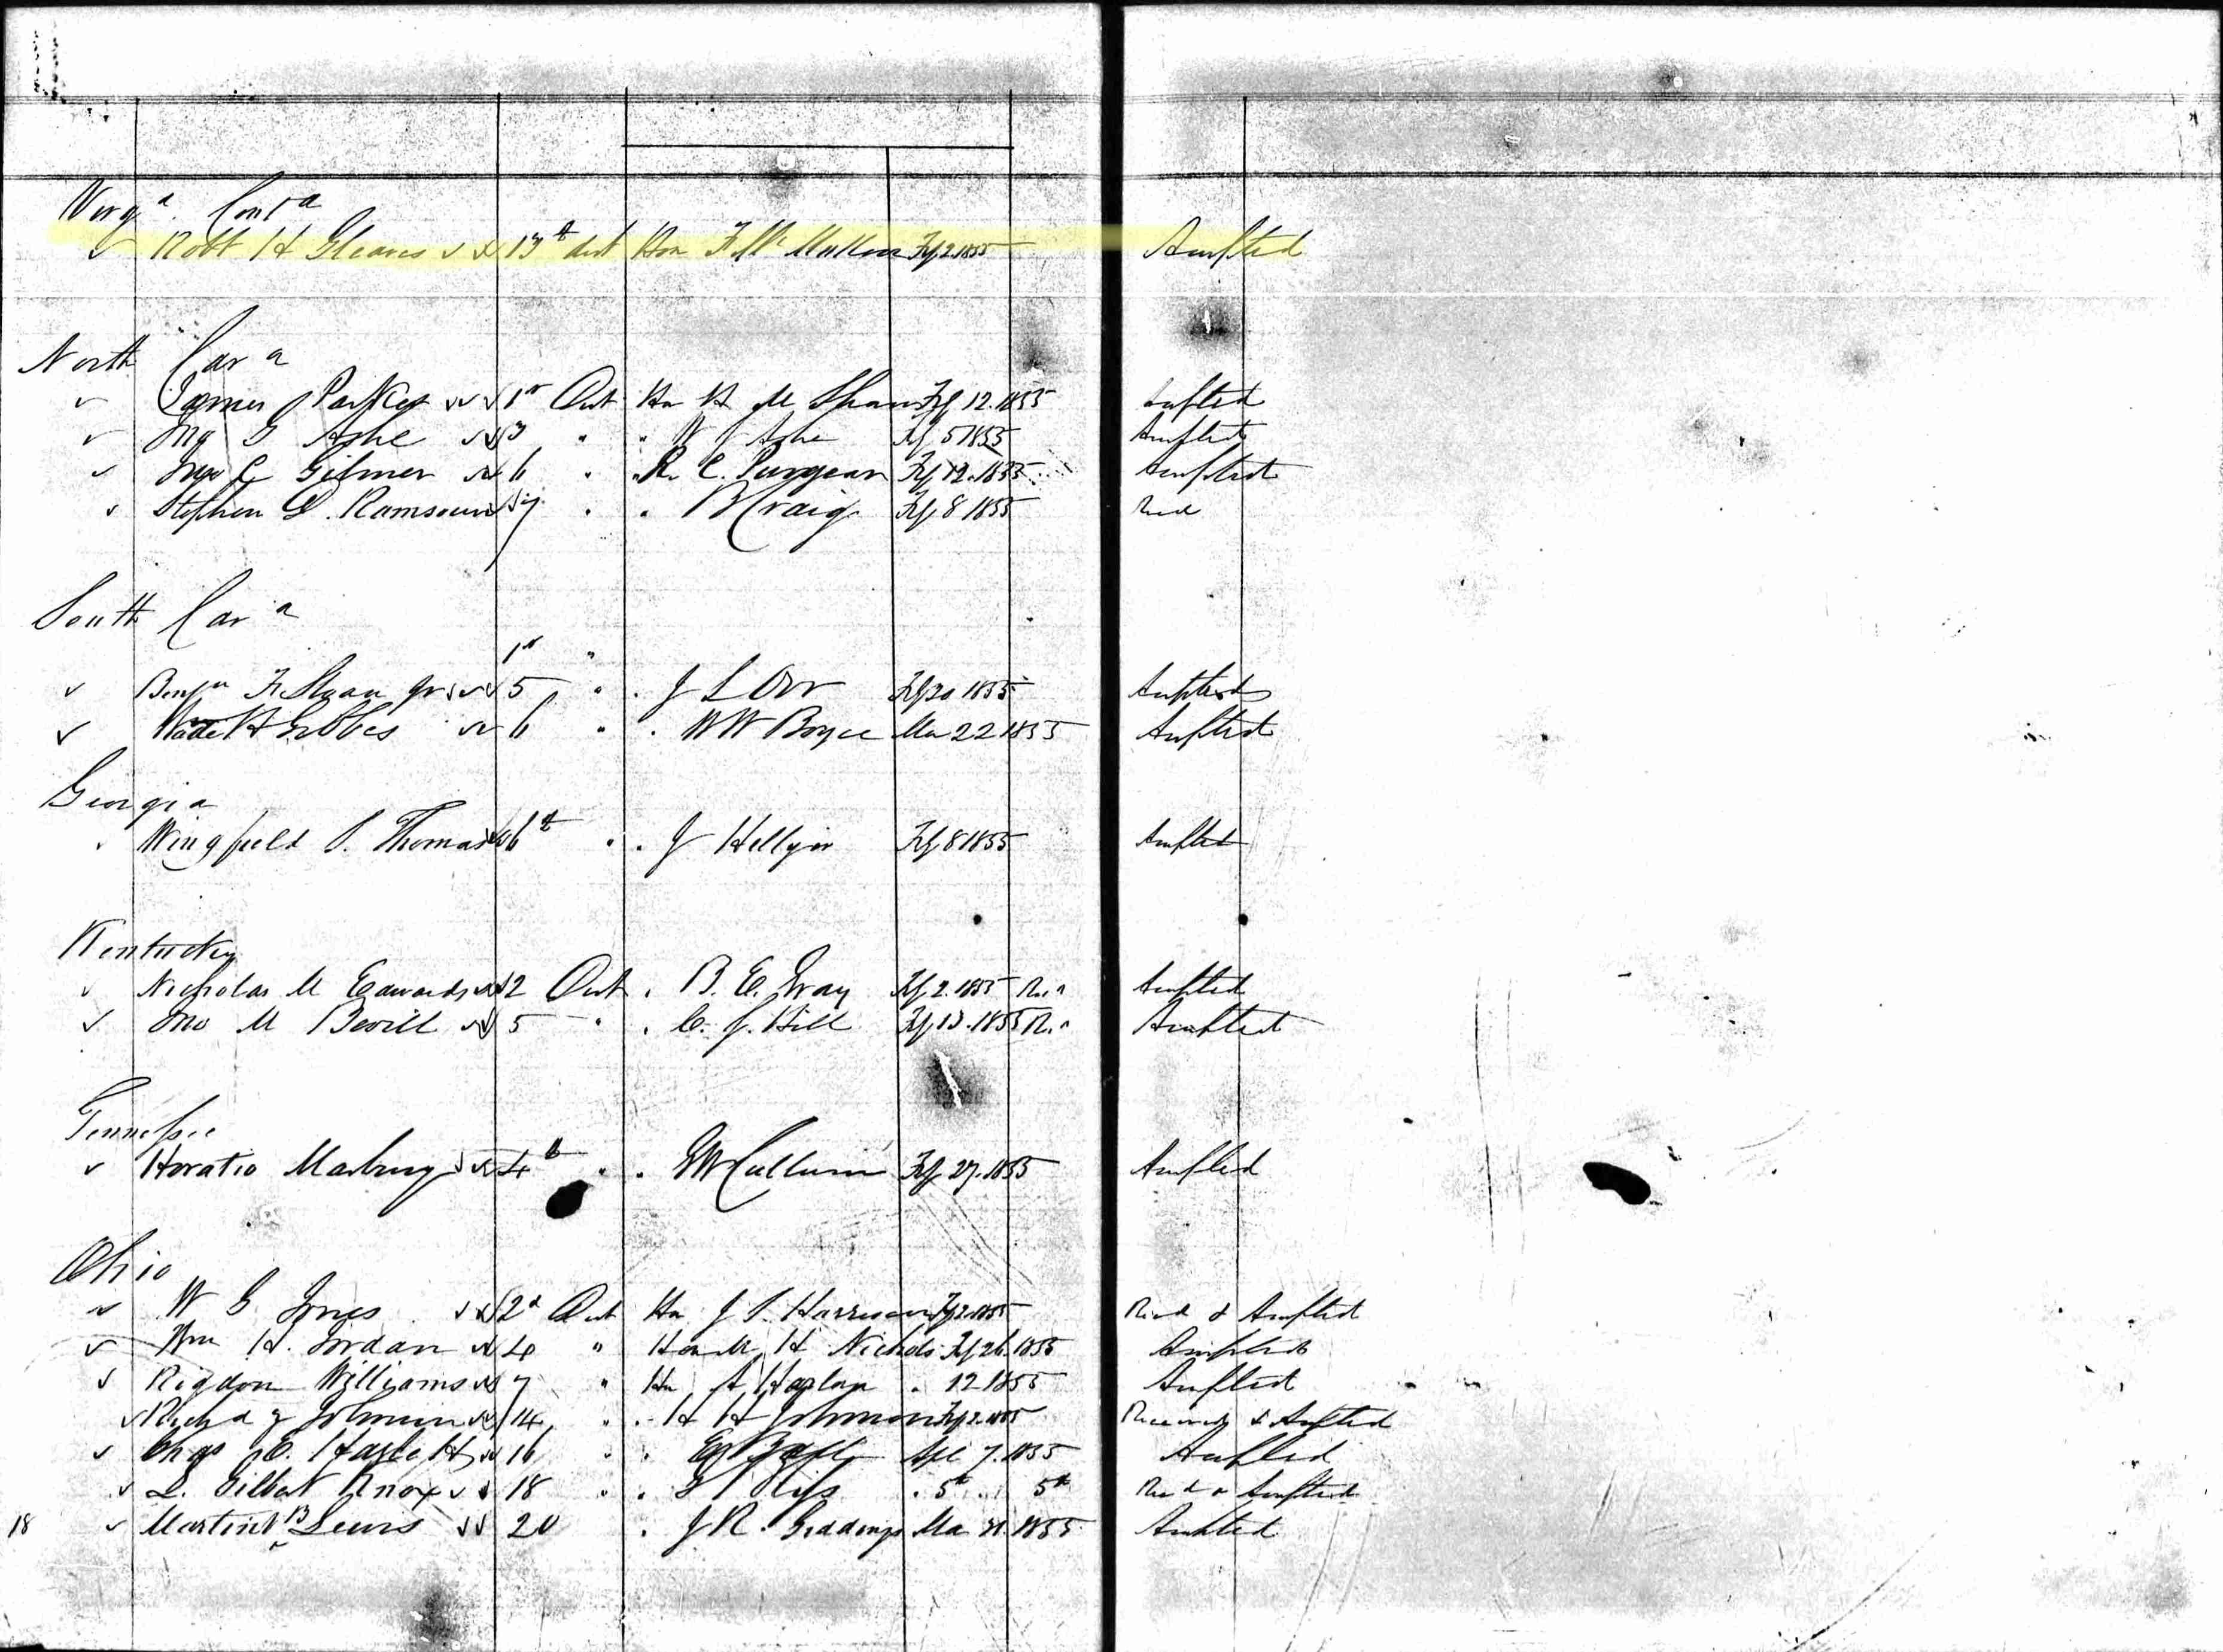 Virg a. Cont a
Robt H Gleaves 13th dist Hon F Mc Mullen Feb 2 1855 Accepted
North Car a
James Parker 1st Dist Hon H M Shaw Feb 12. 1855 Accepted
Jno G Ashe 3 " " W S Ashe Feb 5 1855 Accepted
C Gilmer 6 " " R. C. Puryear Feb 12. 1855 Accepted
Stephen D. Ramseur 7 " " B Craig Feb 8 1855 Recd
South Car a
1st "
Benjn F Sloan Jr 5 " " J L Orr 1855 Accepted
Wade H Gibbes 6 " " W W Boyce Mar 22 1855 Accepted
Georgia
Wingfield S. Thomas 6th " " J Hillyer Feb 8 1855 Accepted
Kentucky
Nicholas M Edwards 2 Dist " B. E. Gray Feb 2. 1855 Accepted
Jno M Bevill 5 " " C. J. Hill Feb 13. 1855 Accepted
Tennessee
Horatio Marbury 4th " " W Cullum Feb 27. 1855 Accepted
Ohio
W G Jones 2d Dist Hon J S. Harrison Feb 2. 1855 Recd & Accepted
Wm H. Jordan 4 " Hon M H Nichols Feb 26. 1855 Accepted
Rigdon Williams 7 " Hon A Harlan " 12 1855 Accepted
Johnson 14 " " H H Johnson Feb 2. 1855 Accepted
Chas E. Hazlett 16 " " E Ball Apl 7. 1855 Accepted
L. Gilbert Knox 18 " " " 5th 5th Recd & Accepted
18 Martin B Lewis 20 " J R. Giddings Mar 1855 Accepted